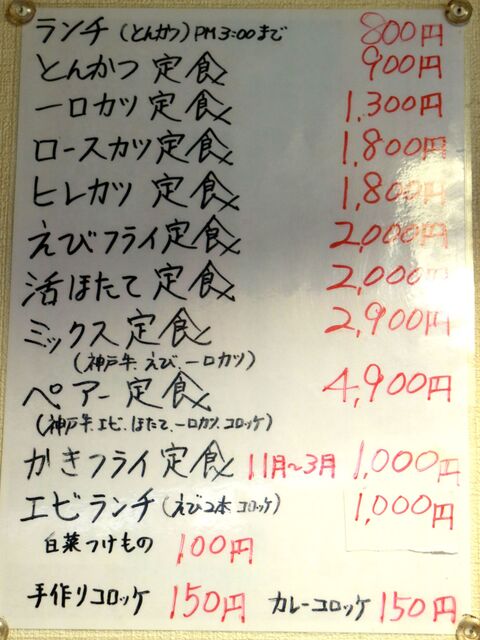 ランチ(とんかつ)PM3:00まで 800円
とんかつ定食 900円
一口カツ定食 1,300円
ロースカツ定食 1,800円
ヒレカツ定食 1,800円
えびフライ定食 2,000円
活ほたて定食 2,000円
ミックス定食 2,900円
(神戸牛、えび、一口カツ)
ペアー定食 4,900円
(神戸牛、エビ、ほたて、一口カツ、コロッケ)
かきフライ定食 11月~3月 1,000円
エビランチ(えび2本 コロッケ) 1,000円
白菜つけもの 100円
手作りコロッケ 150円 カレーコロッケ 150円